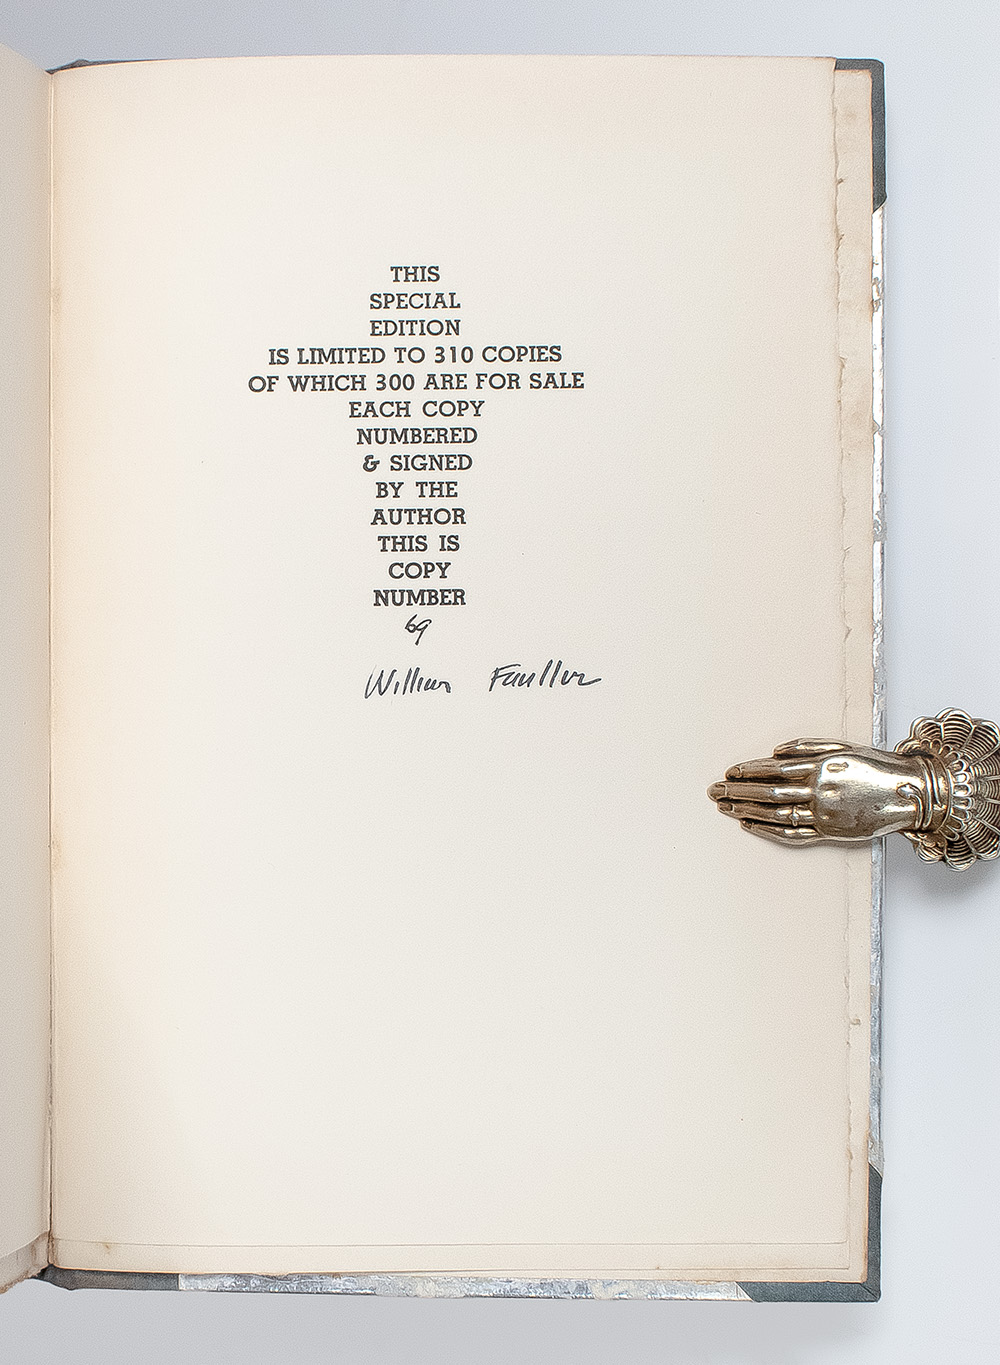 THIS
SPECIAL
EDITION
IS LIMITED TO 310 COPIES
OF WHICH 300 ARE FOR SALE
EACH COPY
NUMBERED
& SIGNED
BY THE
AUTHOR
THIS IS
COPY
NUMBER
69
William Faulkner